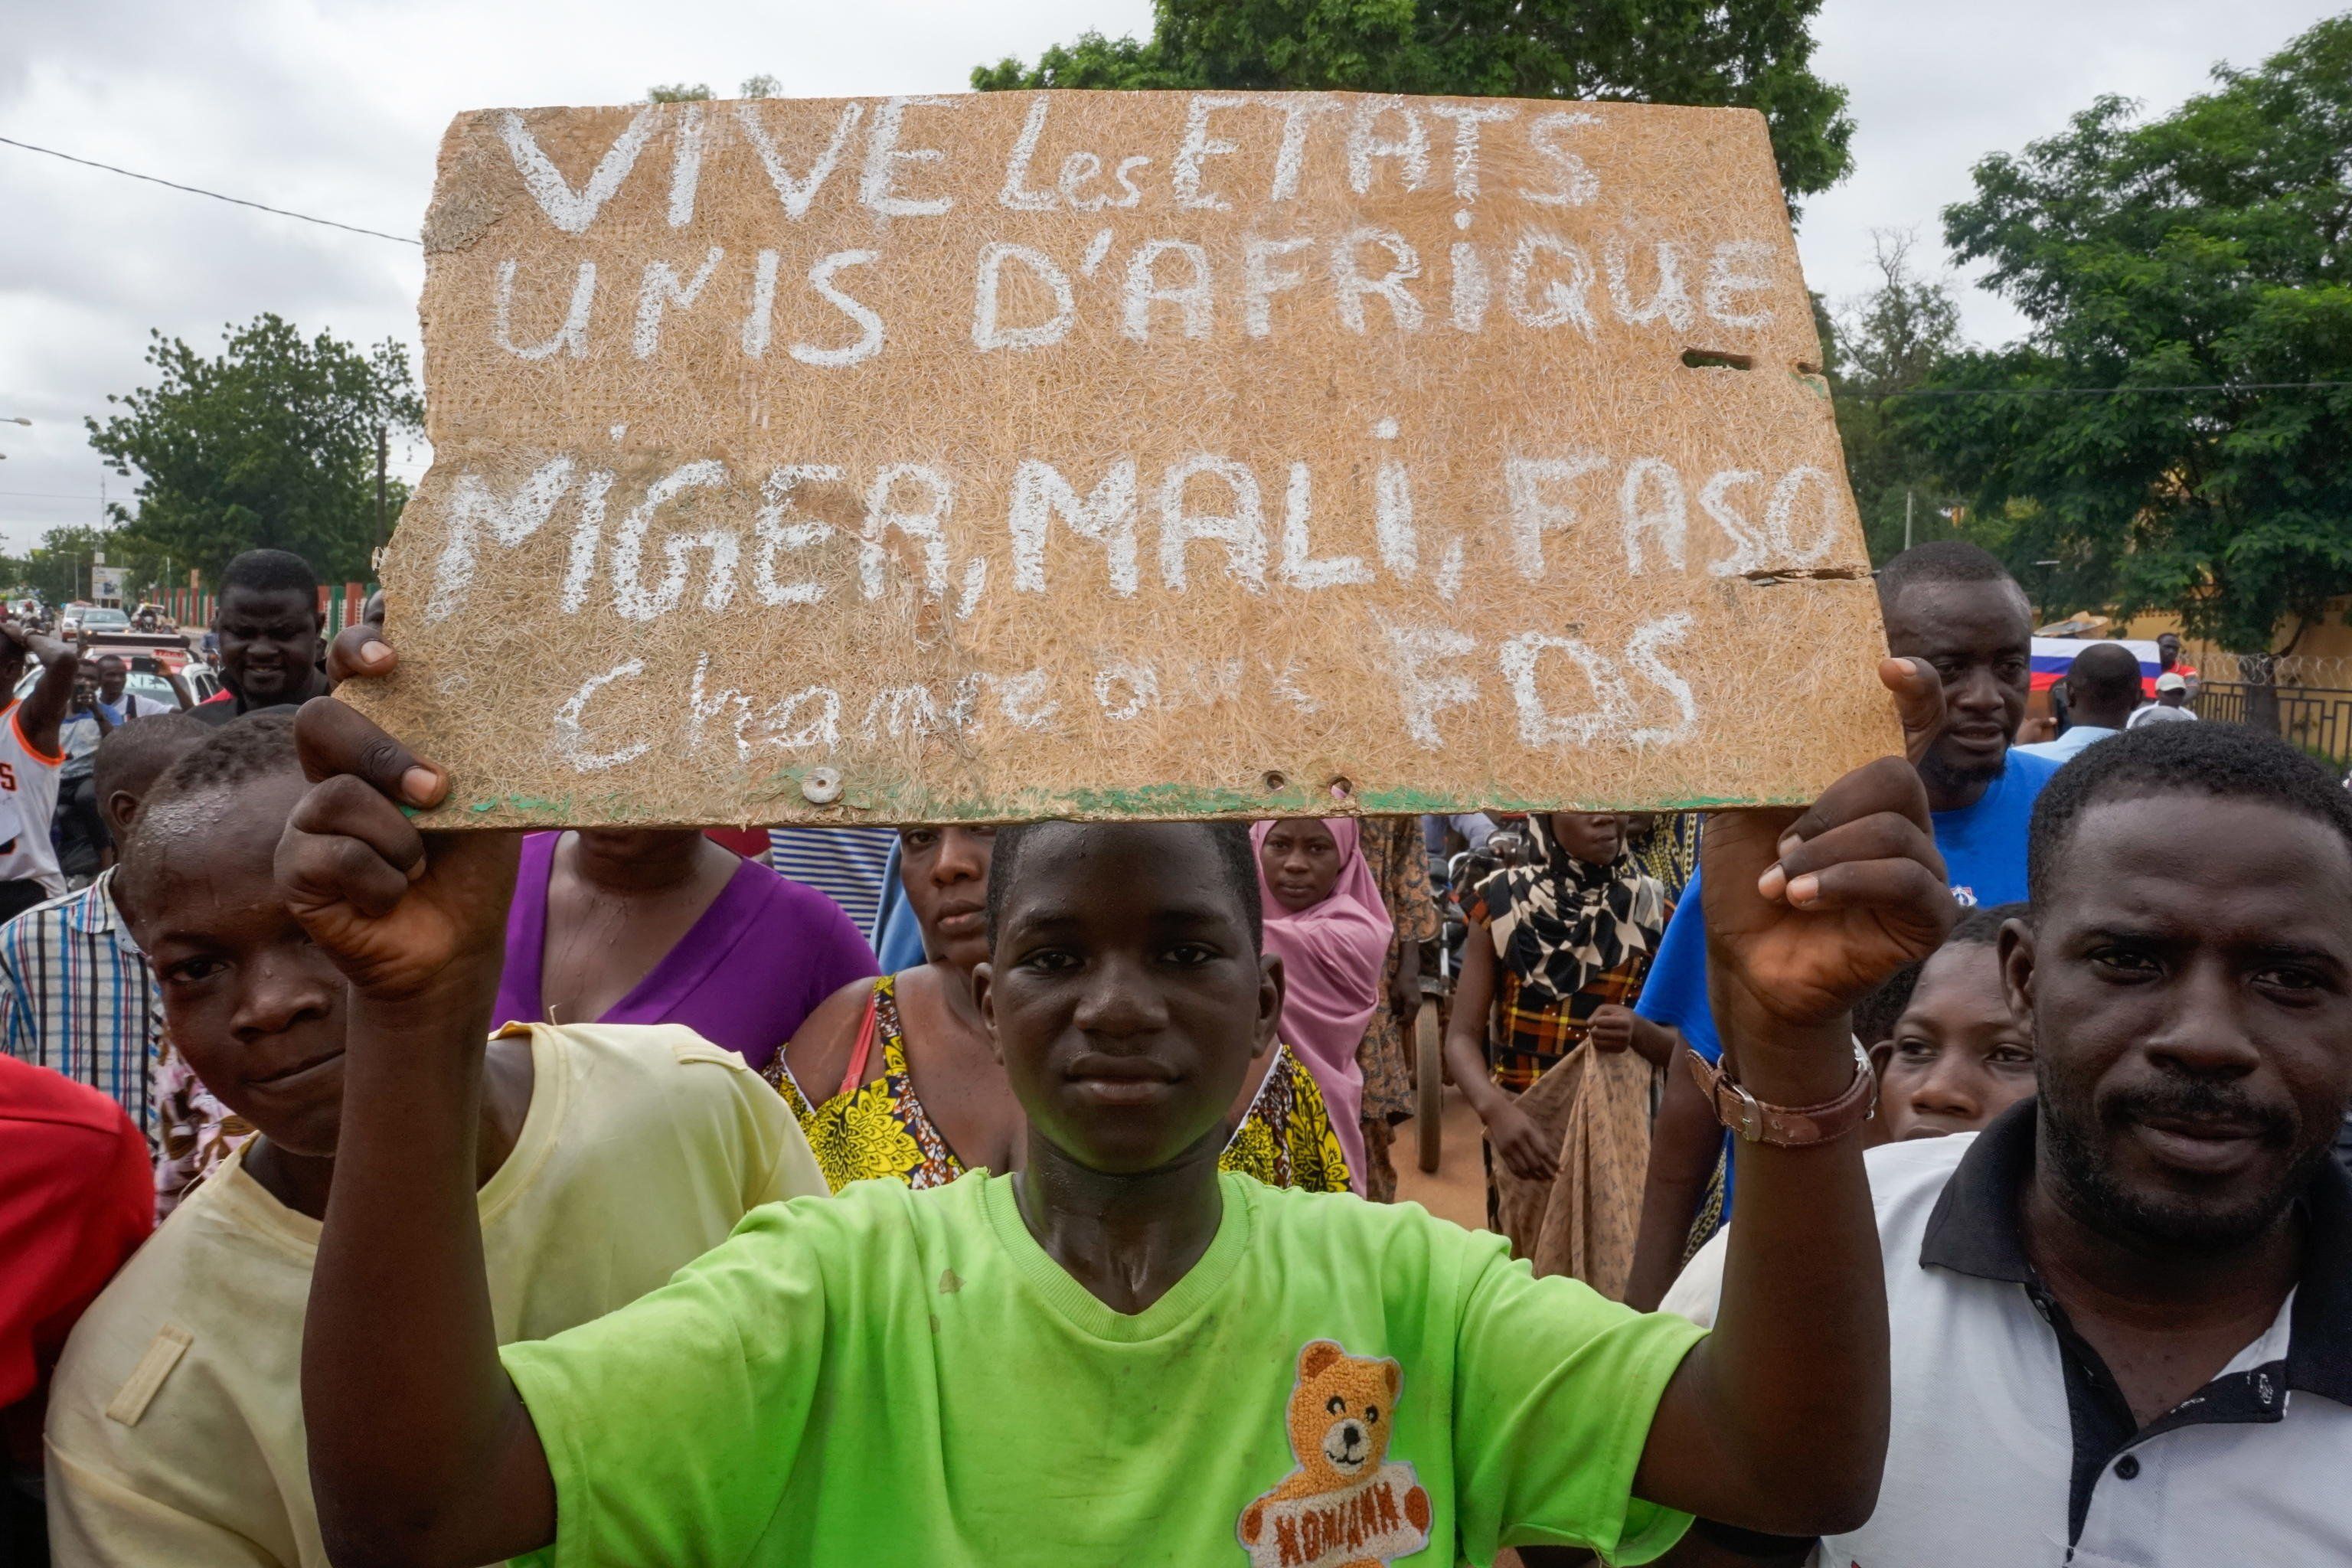 VIVE Les ETATS
UNIS D'AFRIQUE
NIGER, MALI, FASO
FDS